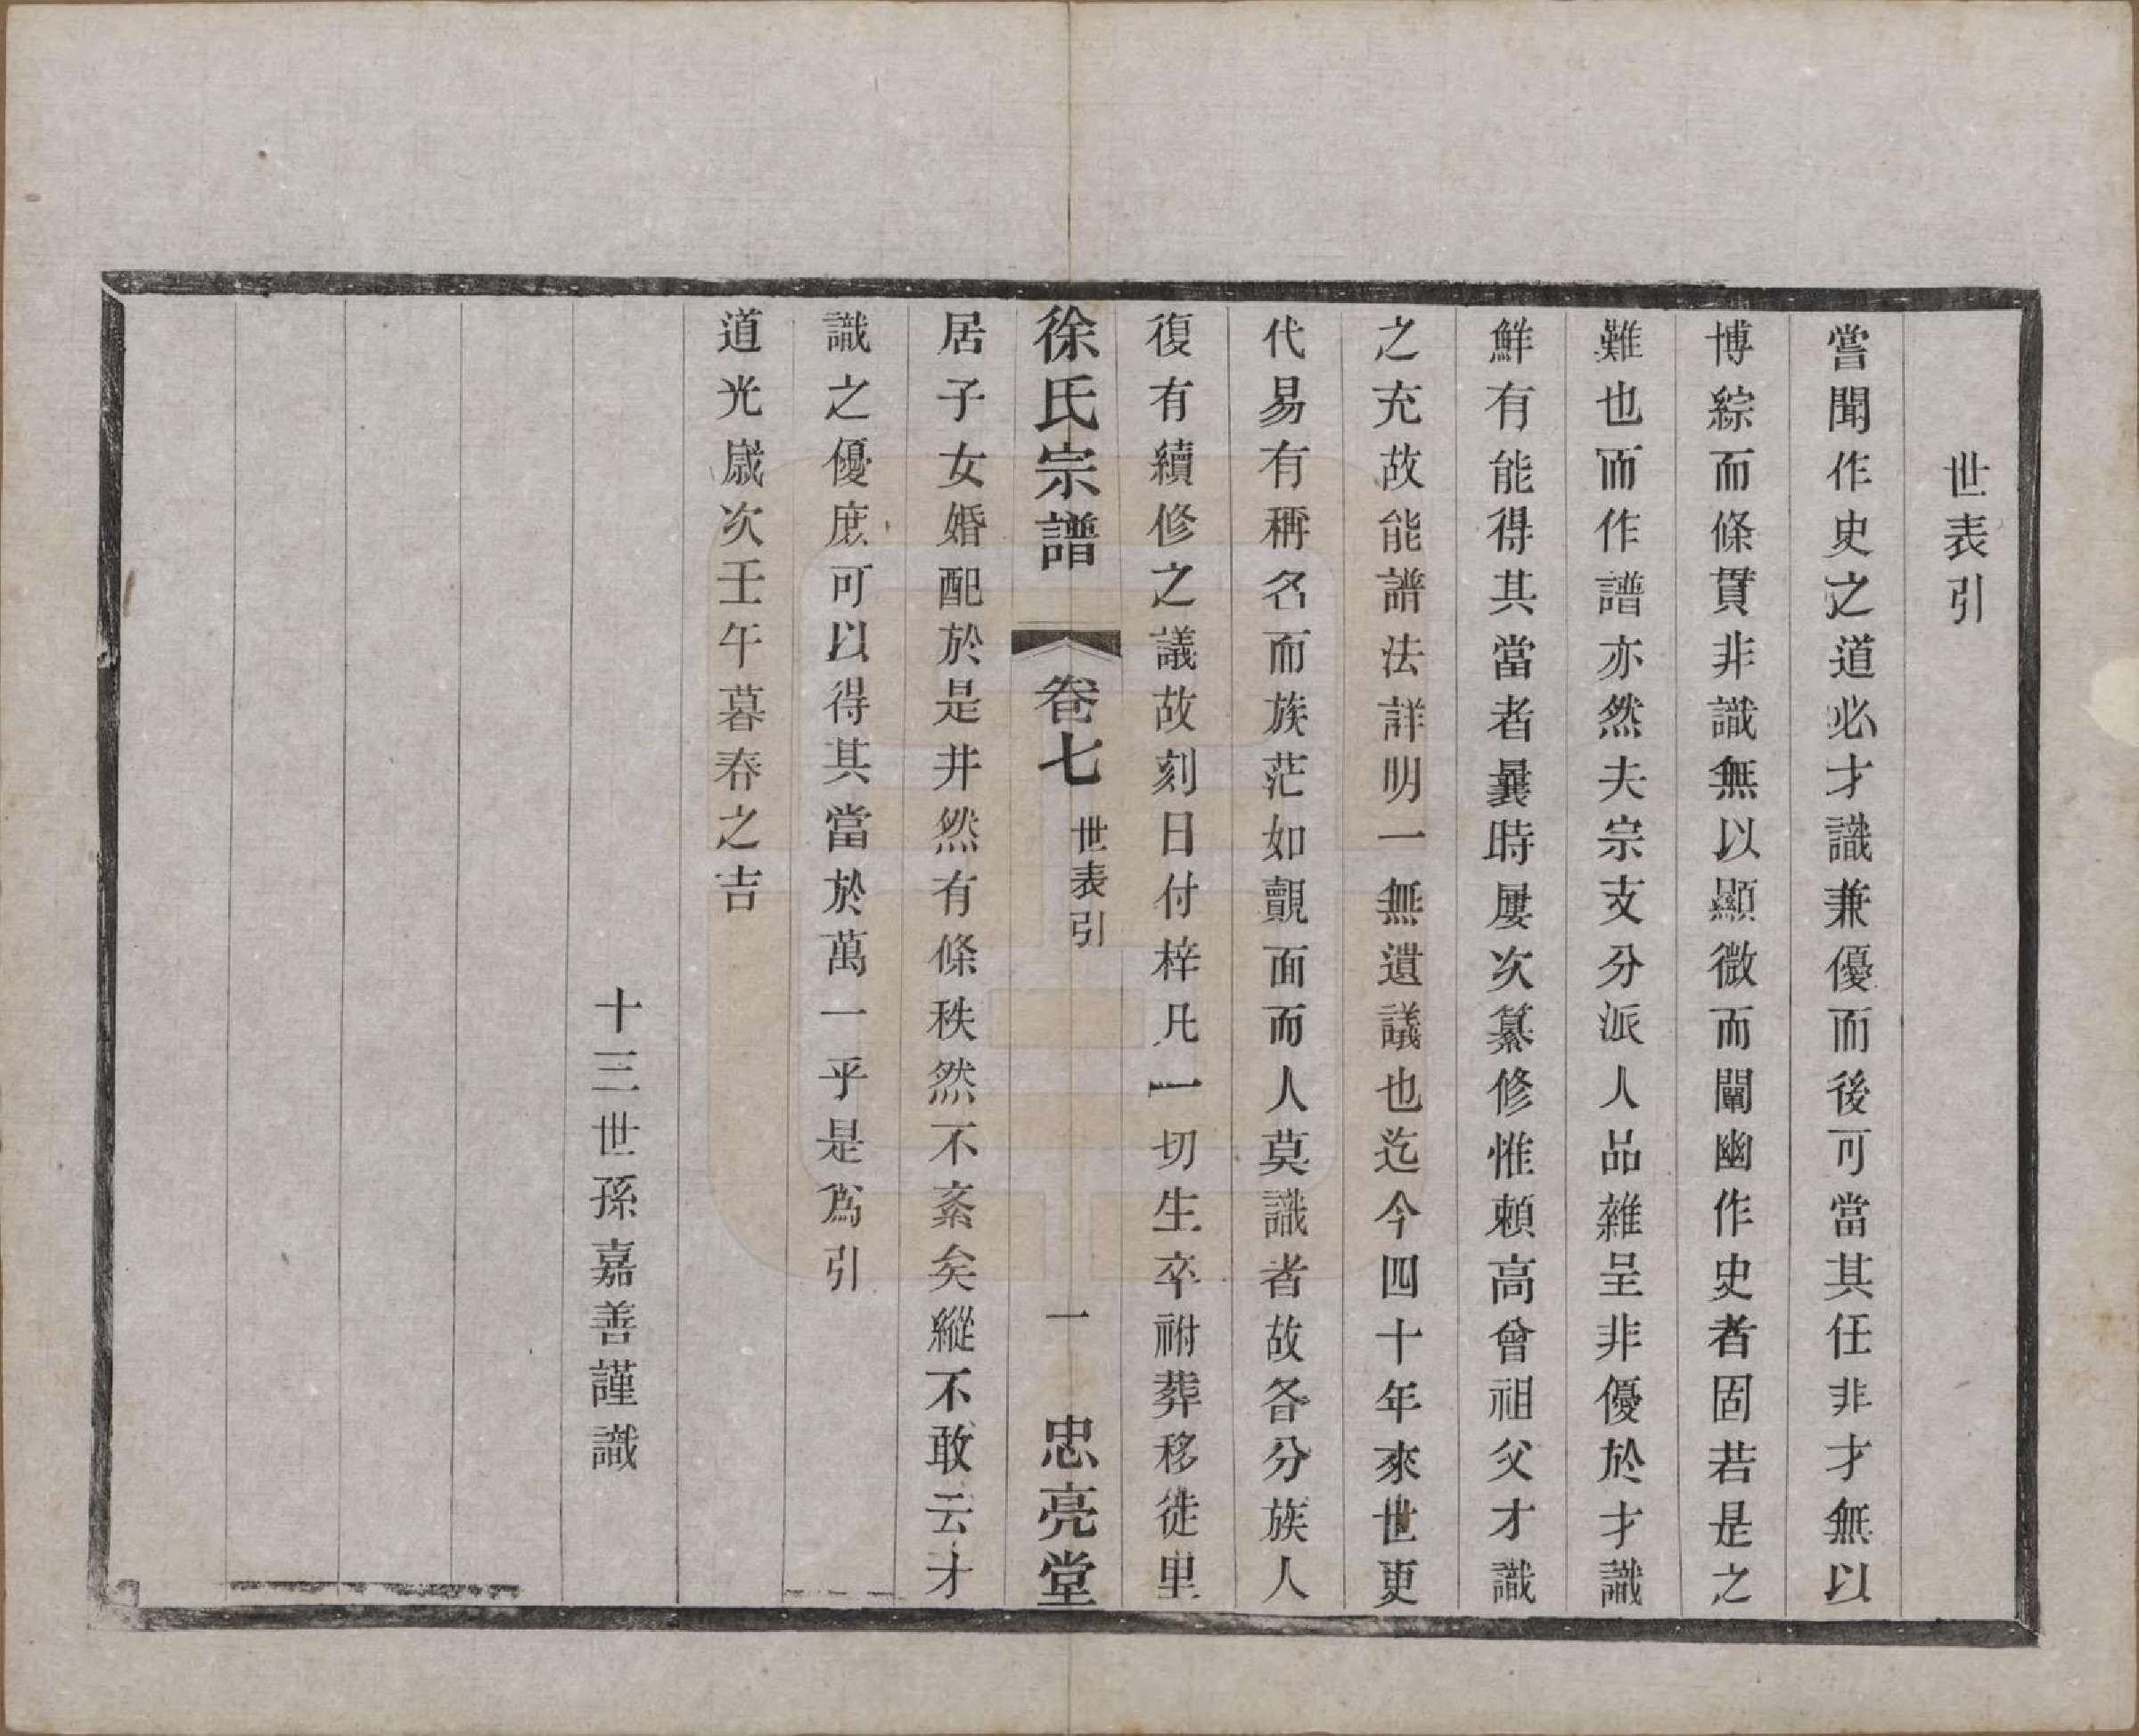 世表引
嘗聞作史之道必才識兼優而後可當其任非才無以
博綜而條貫非識無以顯微而闡幽作史者固若是之
難也而作譜亦然夫宗支分派人品雜呈非優於才識
鮮有能得其當者曩時屢次纂修惟賴高曾祖父才識
之充故能譜法詳明一無遺議也迄今四十年來世更
代易有稱名而族茫如覿面而人莫識者故各分族人
復有續修之議故刻日付梓凡一切生卒祔葬移徙里
徐氏宗譜 卷七 世表引 一 忠亮堂
居子女婚配於是井然有條秩然不紊矣縱不敢云才
識之優庶可以得其當於萬一乎是爲引
道光歲次壬午暮春之吉
十三世孫嘉善謹識